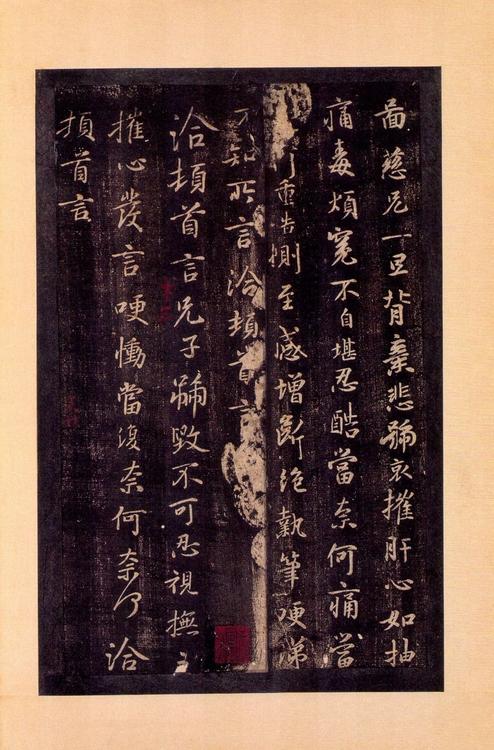 啚慈兄一旦背棄悲號哀摧肝心如抽
痛毒煩冤不自堪忍酷當奈何痛當
重告惻至感增斷絕執筆哽涕
不知所言洽頓首言
洽頓首言兄子號毀不可忍視撫之
摧心發言哽慟當復奈何奈何洽
頓首言